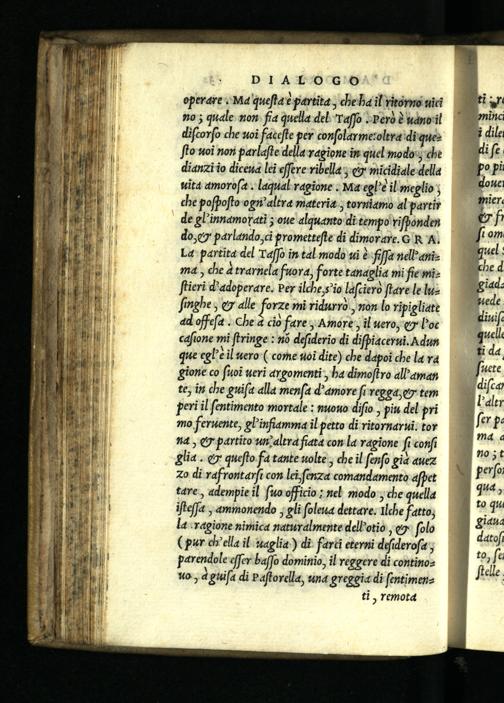 DIALOGO
operare. Ma questa è partita, che ha il ritorno uici
no; quale non fia quella del Tasso. Però è uano il
discorso che uoi faceste per consolarme: oltra di que=
sto uoi non parlaste della ragione in quel modo, che
dianzi io diceua lei essere ribella, & micidiale della
uita amorosa. laqual ragione. Ma egl'è il meglio,
che posposto ogn'altra materia, torniamo al partir
de gl'innamorati; oue alquanto di tempo risponden
do, & parlando, ci prometteste di dimorare. GRA.
La partita del Tasso in tal modo ui è fissa nell'ani=
ma, che à trarnela fuora, forte tanaglia mi fie mi=
stieri d'adoperare. Per ilche, s'io lascierò stare le lu=
singhe, & alle forze mi ridurrò, non lo ripigliate
ad offesa. Che à ciò fare, Amore, il uero, & l'oc
casione mi stringe: nō desiderio di dispiacerui. Adun
que egl'è il uero (come uoi dite) che dapoi che la ra
gione co suoi ueri argomenti, ha dimostro all'aman
te, in che guisa alla mensa d'amore si regga, & tem
peri il sentimento mortale: nuouo disio, piu del pri
mo feruente, gl'infiamma il petto di ritornarui. tor
na, & partito un'altra fiata con la ragione si consi
glia. & questo fa tante uolte, che il senso già auez
zo di rafrontarsi con lei, senza comandamento aspet
tare, adempie il suo officio: nel modo, che quella
istessa, ammonendo, gli soleua dettare. Ilche fatto,
la ragione nimica naturalmente dell'otio, & solo
(pur ch'ella il uaglia) di farci eterni desiderosa,
parendole esser basso dominio, il reggere di contino=
uo, à guisa di Pastorella, una greggia di sentimen=
ti, remota